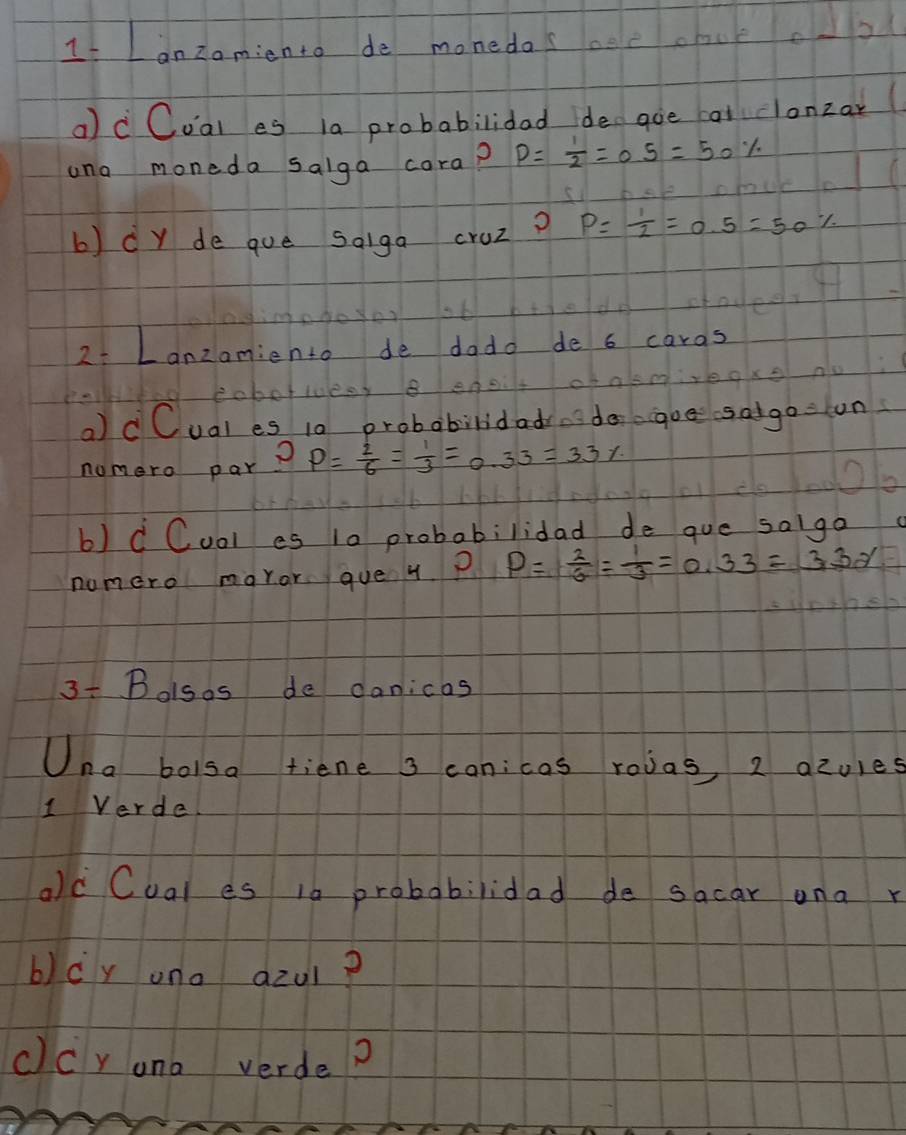 1- Lanzamiento de monedas
a) ¿Cuál es la probabilidad de que al lanzar
una moneda salga cara? P = 1/2 = 0.5 = 50%
b) ¿y de que salga cruz? P = 1/2 = 0.5 = 50%
2- Lanzamiento de dado de 6 caras
a) ¿Cual es la probabilidad de que salga un
numero par? P = 2/6 = 1/3 = 0.33 = 33%
b) ¿Cual es la probabilidad de que salga
numero mayor que 4? P = 2/6 = 1/3 = 0.33 = 33%
3- Bolsas de canicas
Una bolsa tiene 3 canicas rojas, 2 azules
1 Verde.
a) ¿Cual es la probabilidad de sacar una r
b) ¿y una azul?
c) ¿y una verde?